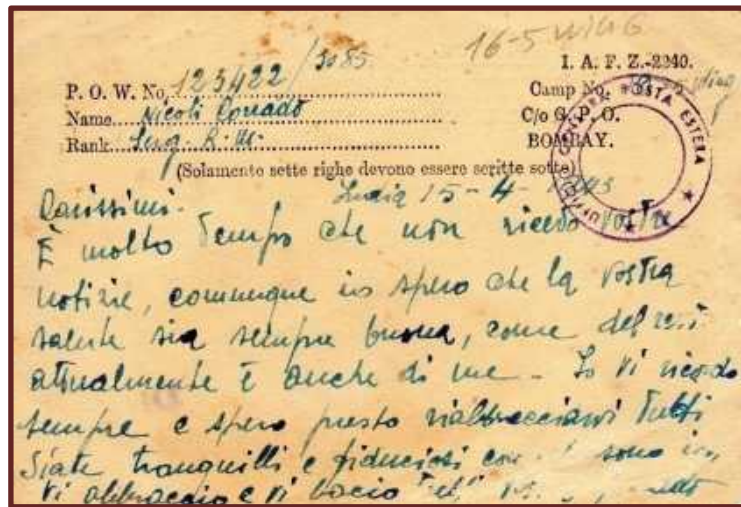 16-5 Wing
I. A. F. Z.-2240.
P. O. W. No. 123422/3085
Camp No.
Name Nicoli Corrado
C/o G. P. O.
Rank Serg. R. M.
BOMBAY.
POSTA ESTERA
(Solamente sette righe devono essere scritte sotto)
India 15-4-1943
Carissimi.
È molto tempo che non ricevo vostre
notizie, comunque io spero che la vostra
salute sia sempre buona, come del resto
attualmente è anche di me - Io vi ricordo
sempre e spero presto riabbracciarvi tutti
Siate tranquilli e fiduciosi sono io
vi abbraccio e vi bacio